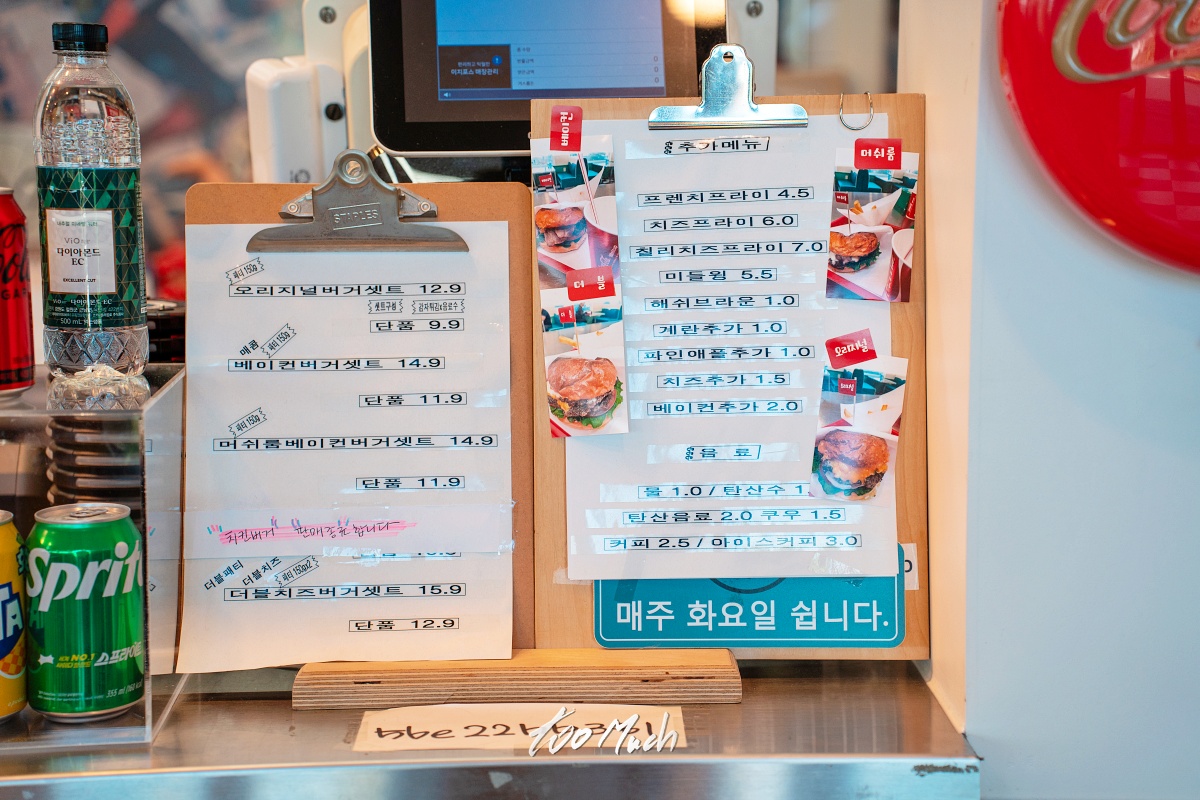 STAPLES
패티 150g
오리지널버거셋트 12.9
셋트구성 감자튀김&음료수
단품 9.9
매콤 패티 150g
베이컨버거셋트 14.9
단품 11.9
패티 150g
머쉬룸베이컨버거셋트 14.9
단품 11.9
치킨버거 판매종료합니다
더블패티 더블치즈 패티 150gx2
더블치즈버거셋트 15.9
단품 12.9
베이컨
더블
머쉬룸
오리지널
추가메뉴
프렌치프라이 4.5
치즈프라이 6.0
칠리치즈프라이 7.0
미들윙 5.5
해쉬브라운 1.0
계란추가 1.0
파인애플추가 1.0
치즈추가 1.5
베이컨추가 2.0
음 료
물 1.0 / 탄산수 1
탄산음료 2.0 쿠우 1.5
커피 2.5 / 아이스커피 3.0
매주 화요일 쉽니다.
위치포스 매장관리
ViOne
다이아몬드
EC
EXCELLENT CUT
500 mL
Sprite
스프라이트
355 ml
too Much